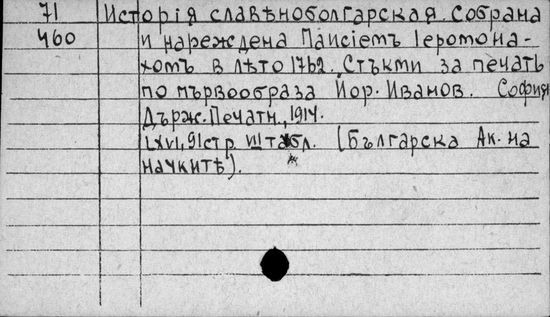 71 Исторія славѣноболгарская. Собрана
460 и нареждена Паисіемъ Іеромона-
хомъ в лѣто 1762. Стъкми за печать
по първообраза Йор. Иванов. София
Държ. Печатн., 1914.
LXVI, 91 стр. VIII табл. (Българска Ак. на
начкитѣ).